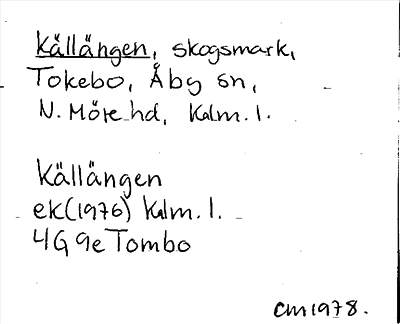 Källängen, skogsmark,
Tokebo, Åby sn,
N. Möre hd, Kalm. l.
Källängen
ek(1976) Kalm. l.
4G 9e Tombo
CM1978.